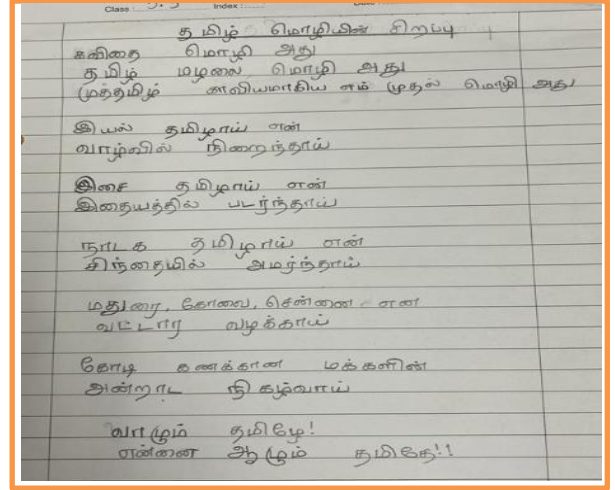 Class 5.5 Index
தமிழ் மொழியின் சிறப்பு
கவிதை மொழி அது
தமிழ் மழலை மொழி அது
முத்தமிழ் காவியமாகிய எம் முதல் மொழி அது
இயல் தமிழாய் என்
வாழ்வில் நிறைந்தாய்
இசை தமிழாய் என்
இதையத்தில் படர்ந்தாய்
நாடக தமிழாய் என்
சிந்தையில் அமர்ந்தாய்
மதுரை, கோவை, சென்னை என
வட்டார வழக்காய்
கோடி கணக்கான மக்களின்
அன்றாட நிகழ்வாய்
வாழும் தமிழே!
என்னை ஆழும் தமிதே!!